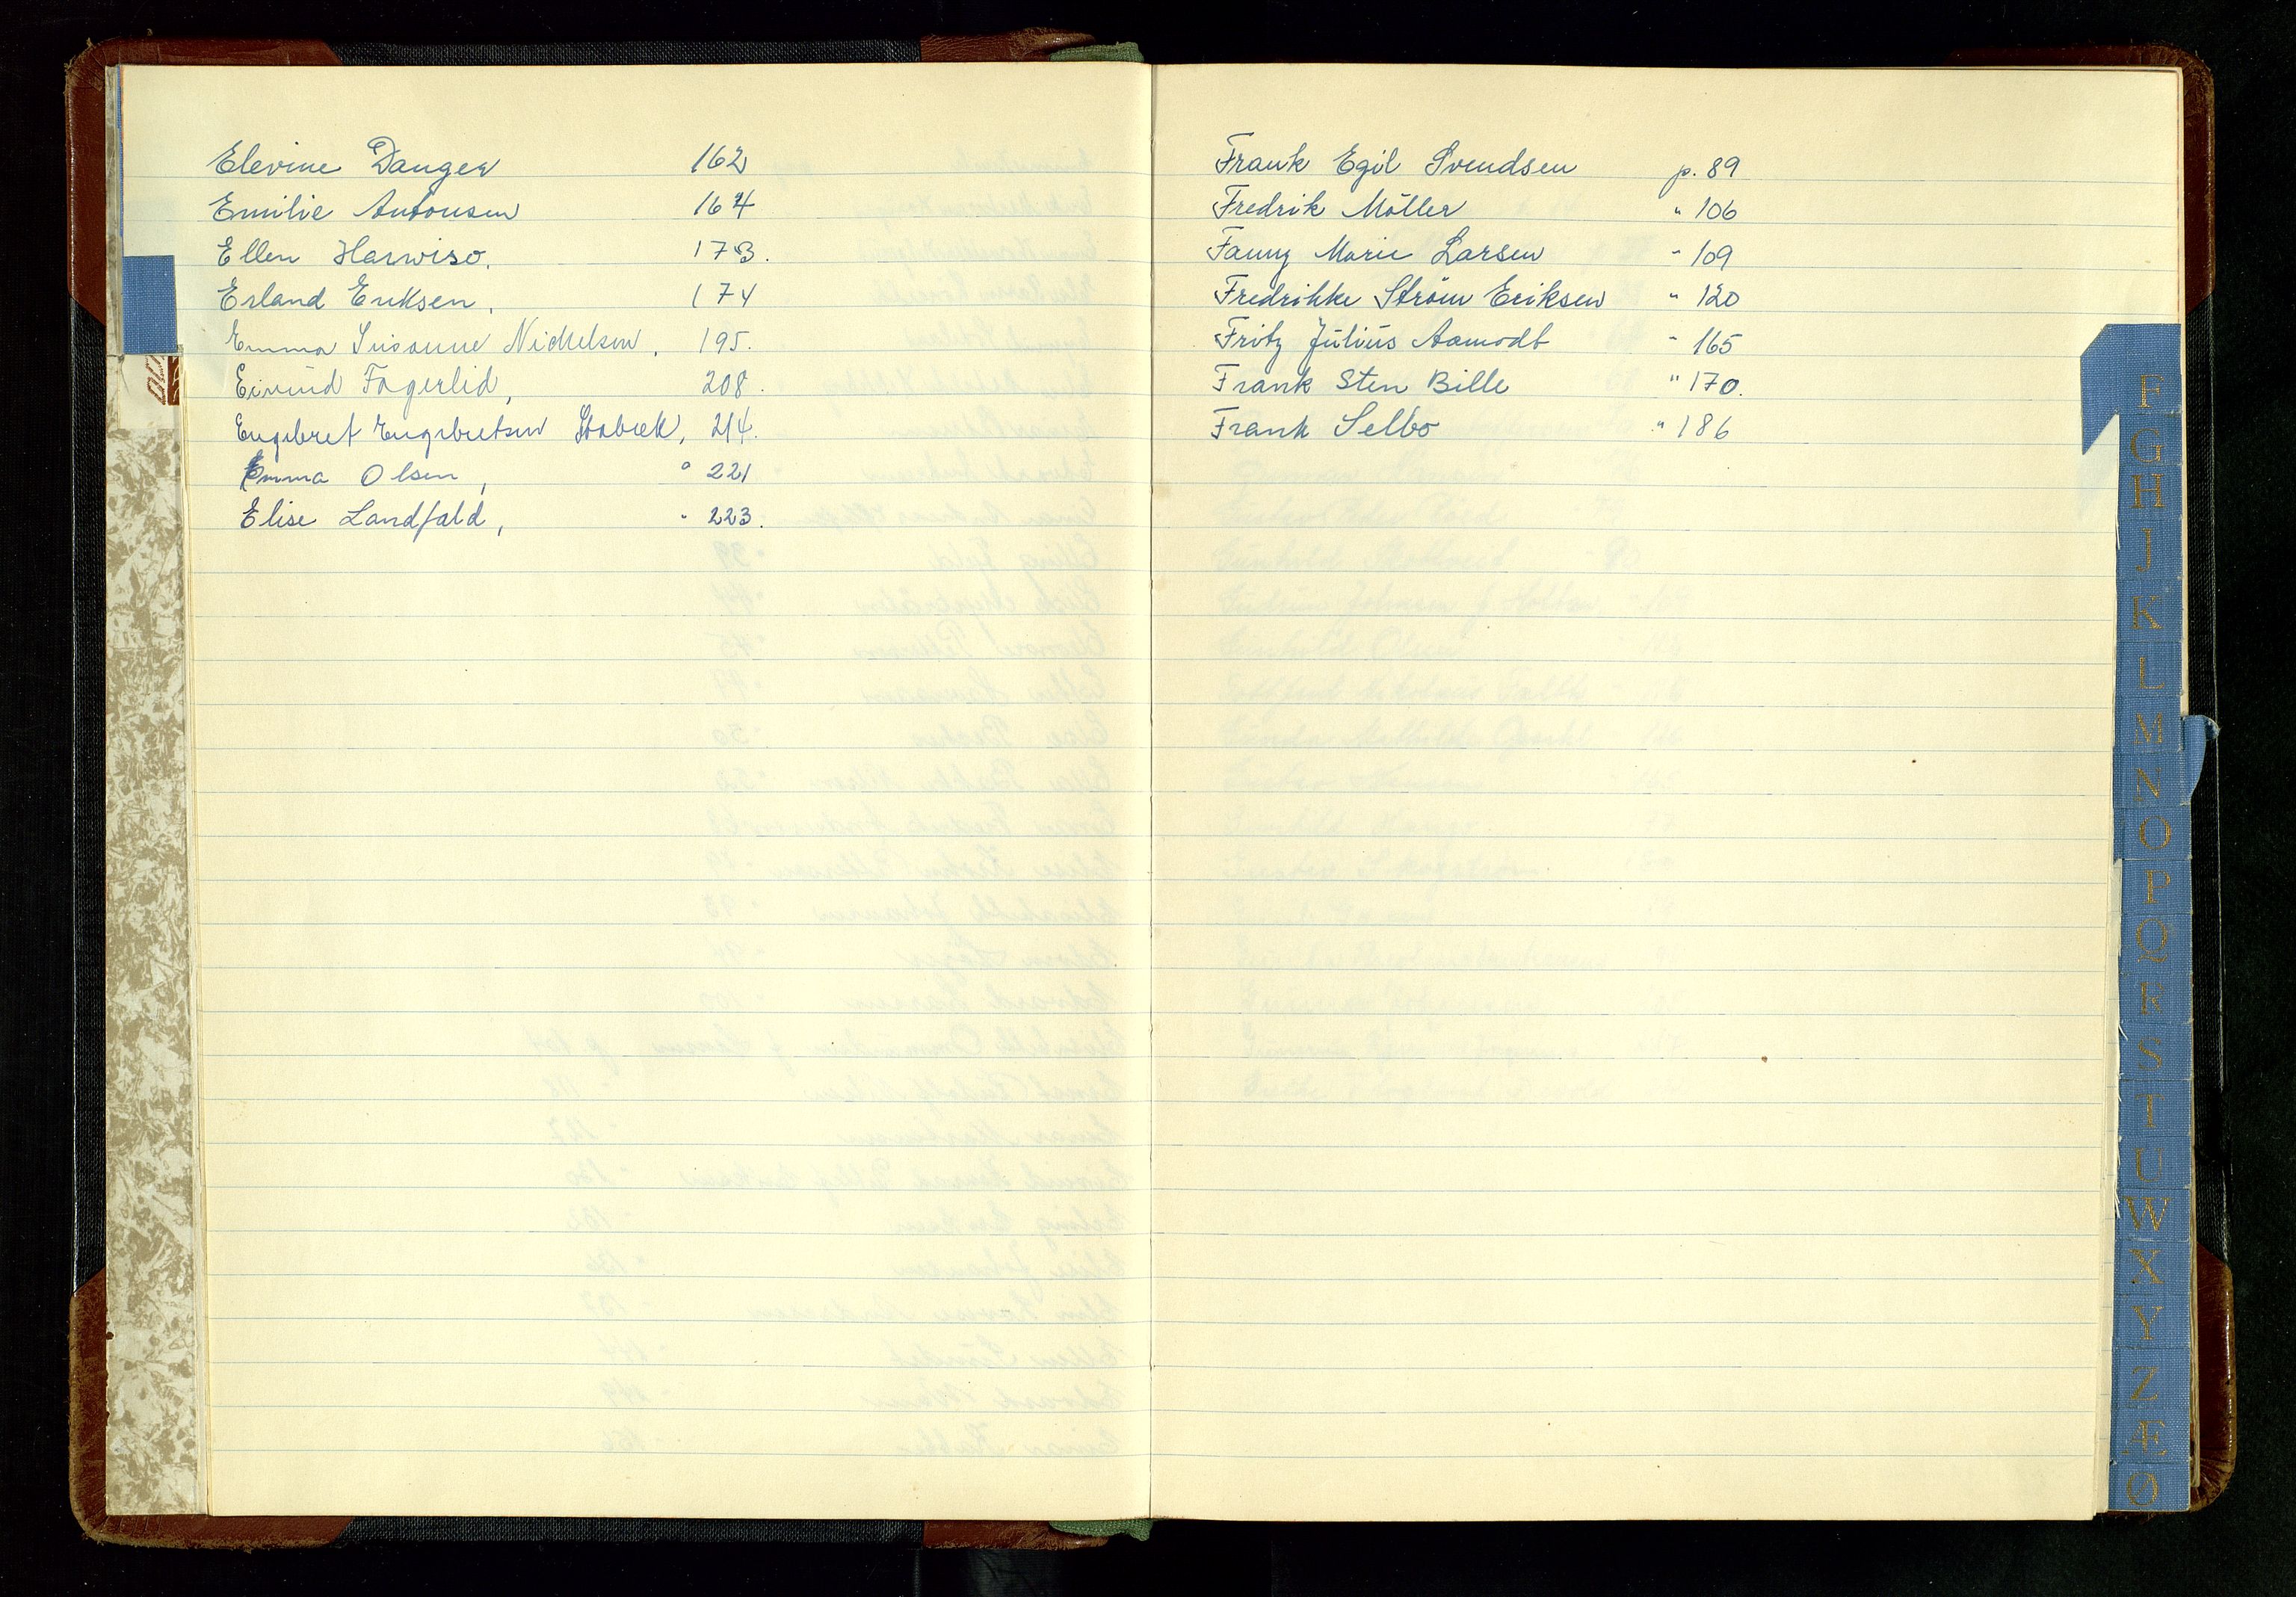 Elevine Danger 162
Emilie Antonsen 164
Ellen Harwiso. 173.
Erland Eriksen, 174
Emma Susanne Nickelsen, 195.
Eivind Fagerlid, 208.
Engebret Engebretsen Stabæk, 214.
Emma Olsen, " 221
Elise Landfald, " 223.
Frank Egil Svendsen p. 89
Fredrik Möller " 106
Fanny Marie Larsen " 109
Fredrikke Ström Eriksen " 120
Fritz Julius Aamodt " 165
Frank Sten Bille " 170.
Frank Selbo " 186
F
G
H
J
K
L
M
N
O
P
Q
R
S
T
U
W
X
Y
Z
Æ
Ø